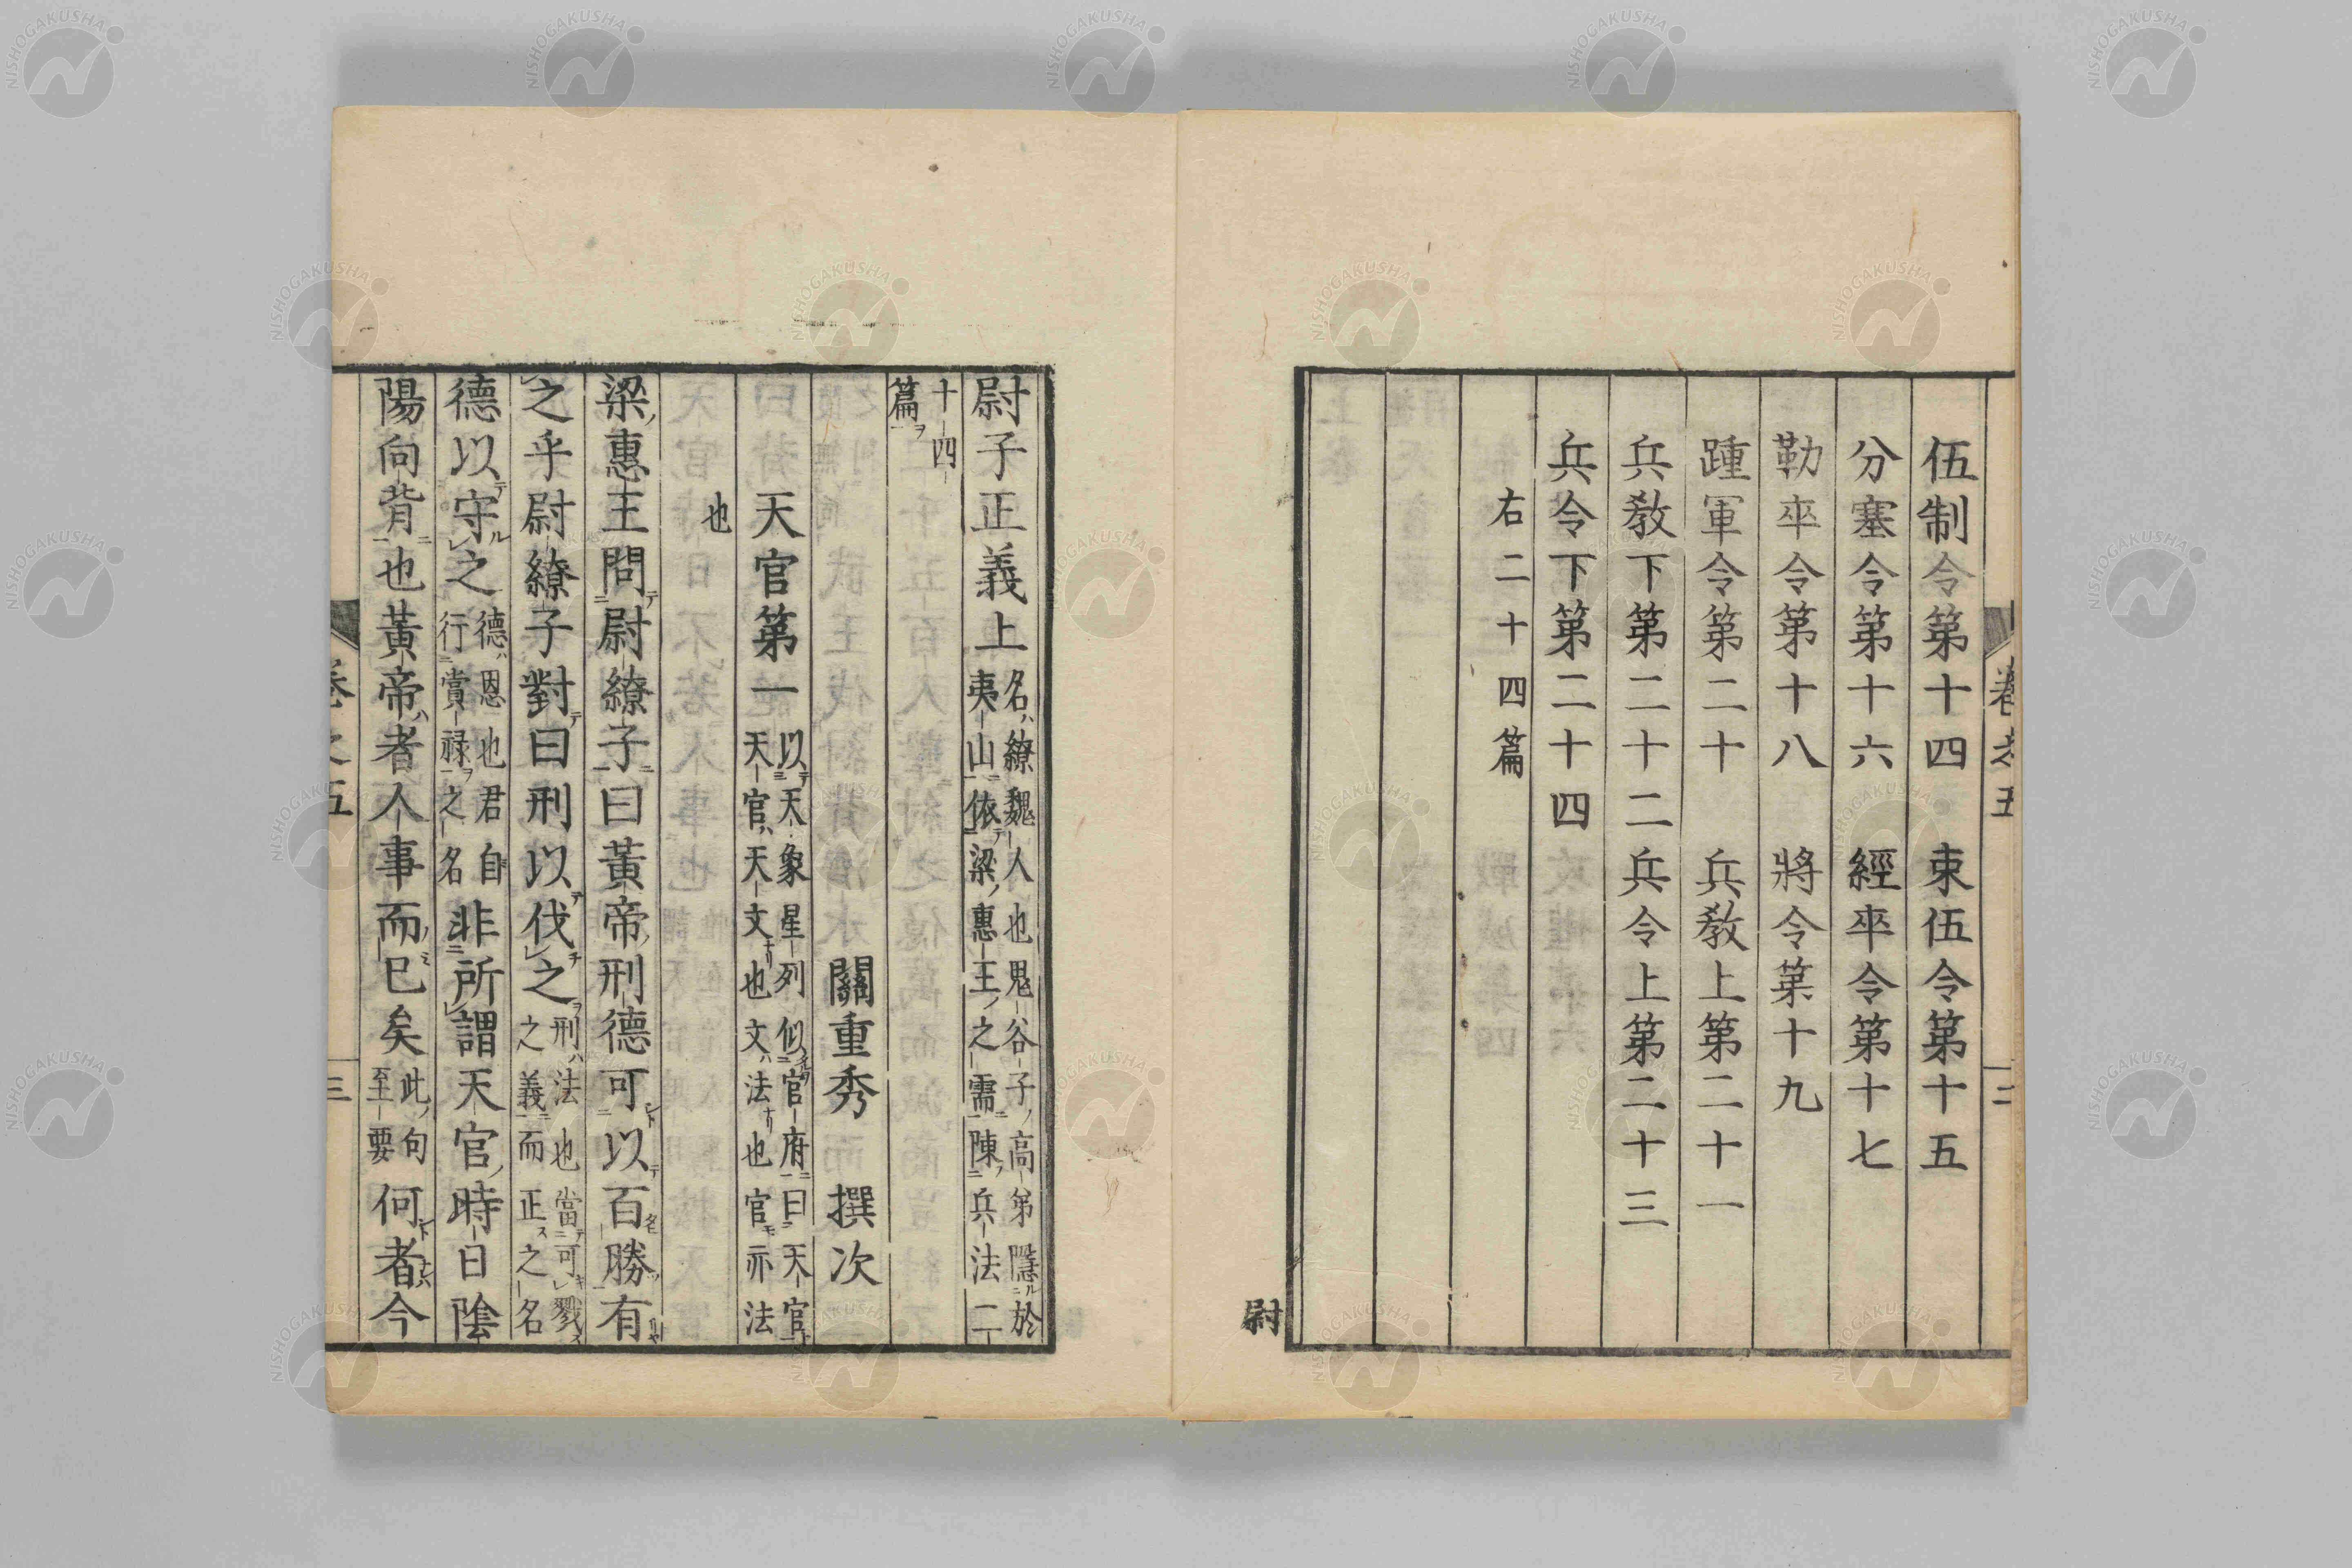 卷之五
二
伍制令第十四 束伍令第十五
分塞令第十六 經卒令第十七
勒卒令第十八 將令第十九
踵軍令第二十 兵敎上第二十一
兵敎下第二十二 兵令上第二十三
兵令下第二十四
右二十四篇
尉
尉子正義上 名ハ繚魏人也鬼谷子ノ高弟隱ル於
夷山ニ依テ梁ノ惠王ノ之需ニ陳ノ兵法二
十四
篇ヲ
關重秀 撰次
天官第一 以テ天象星列似ルヲ官府ニ曰天官ト
天官ハ天文ナリ也文ハ法ナリ也官モ亦法
也
梁ノ惠王問テ尉繚子ニ曰黃帝ノ刑德可ト以テ百勝ツ有リヤ
之乎尉繚子對テ曰刑以テ伐チ之ヲ 刑ハ法也當ニテ可キ戮ス
之義ニ而正ス之名
德以テ守ル之 德ハ恩也君自
行ニ賞祿ヲ之名 非所謂天官ノ時日陰
陽向背ニ也黃帝ハ者人事而ノミ已矣 此ノ句
至要 何ト者ナレハ今
卷之五
三
NISHOGAKUSHA